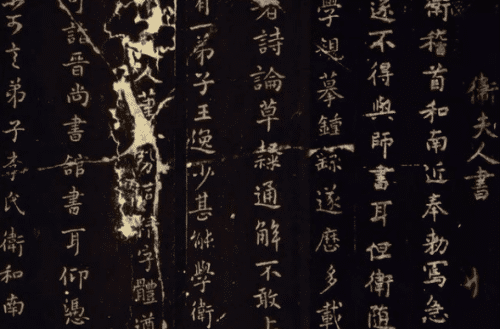 衛夫人書
衛稽首和南近奉勅寫急
遂不得與師書耳但衛隨
學規摹鍾繇遂歷多載
著詩論草隸通解不敢上
有一弟子王逸少甚能學衛
人筆勢洞精字體遒
可詣晉尚書館書耳仰憑
不可言弟子李氏衛和南